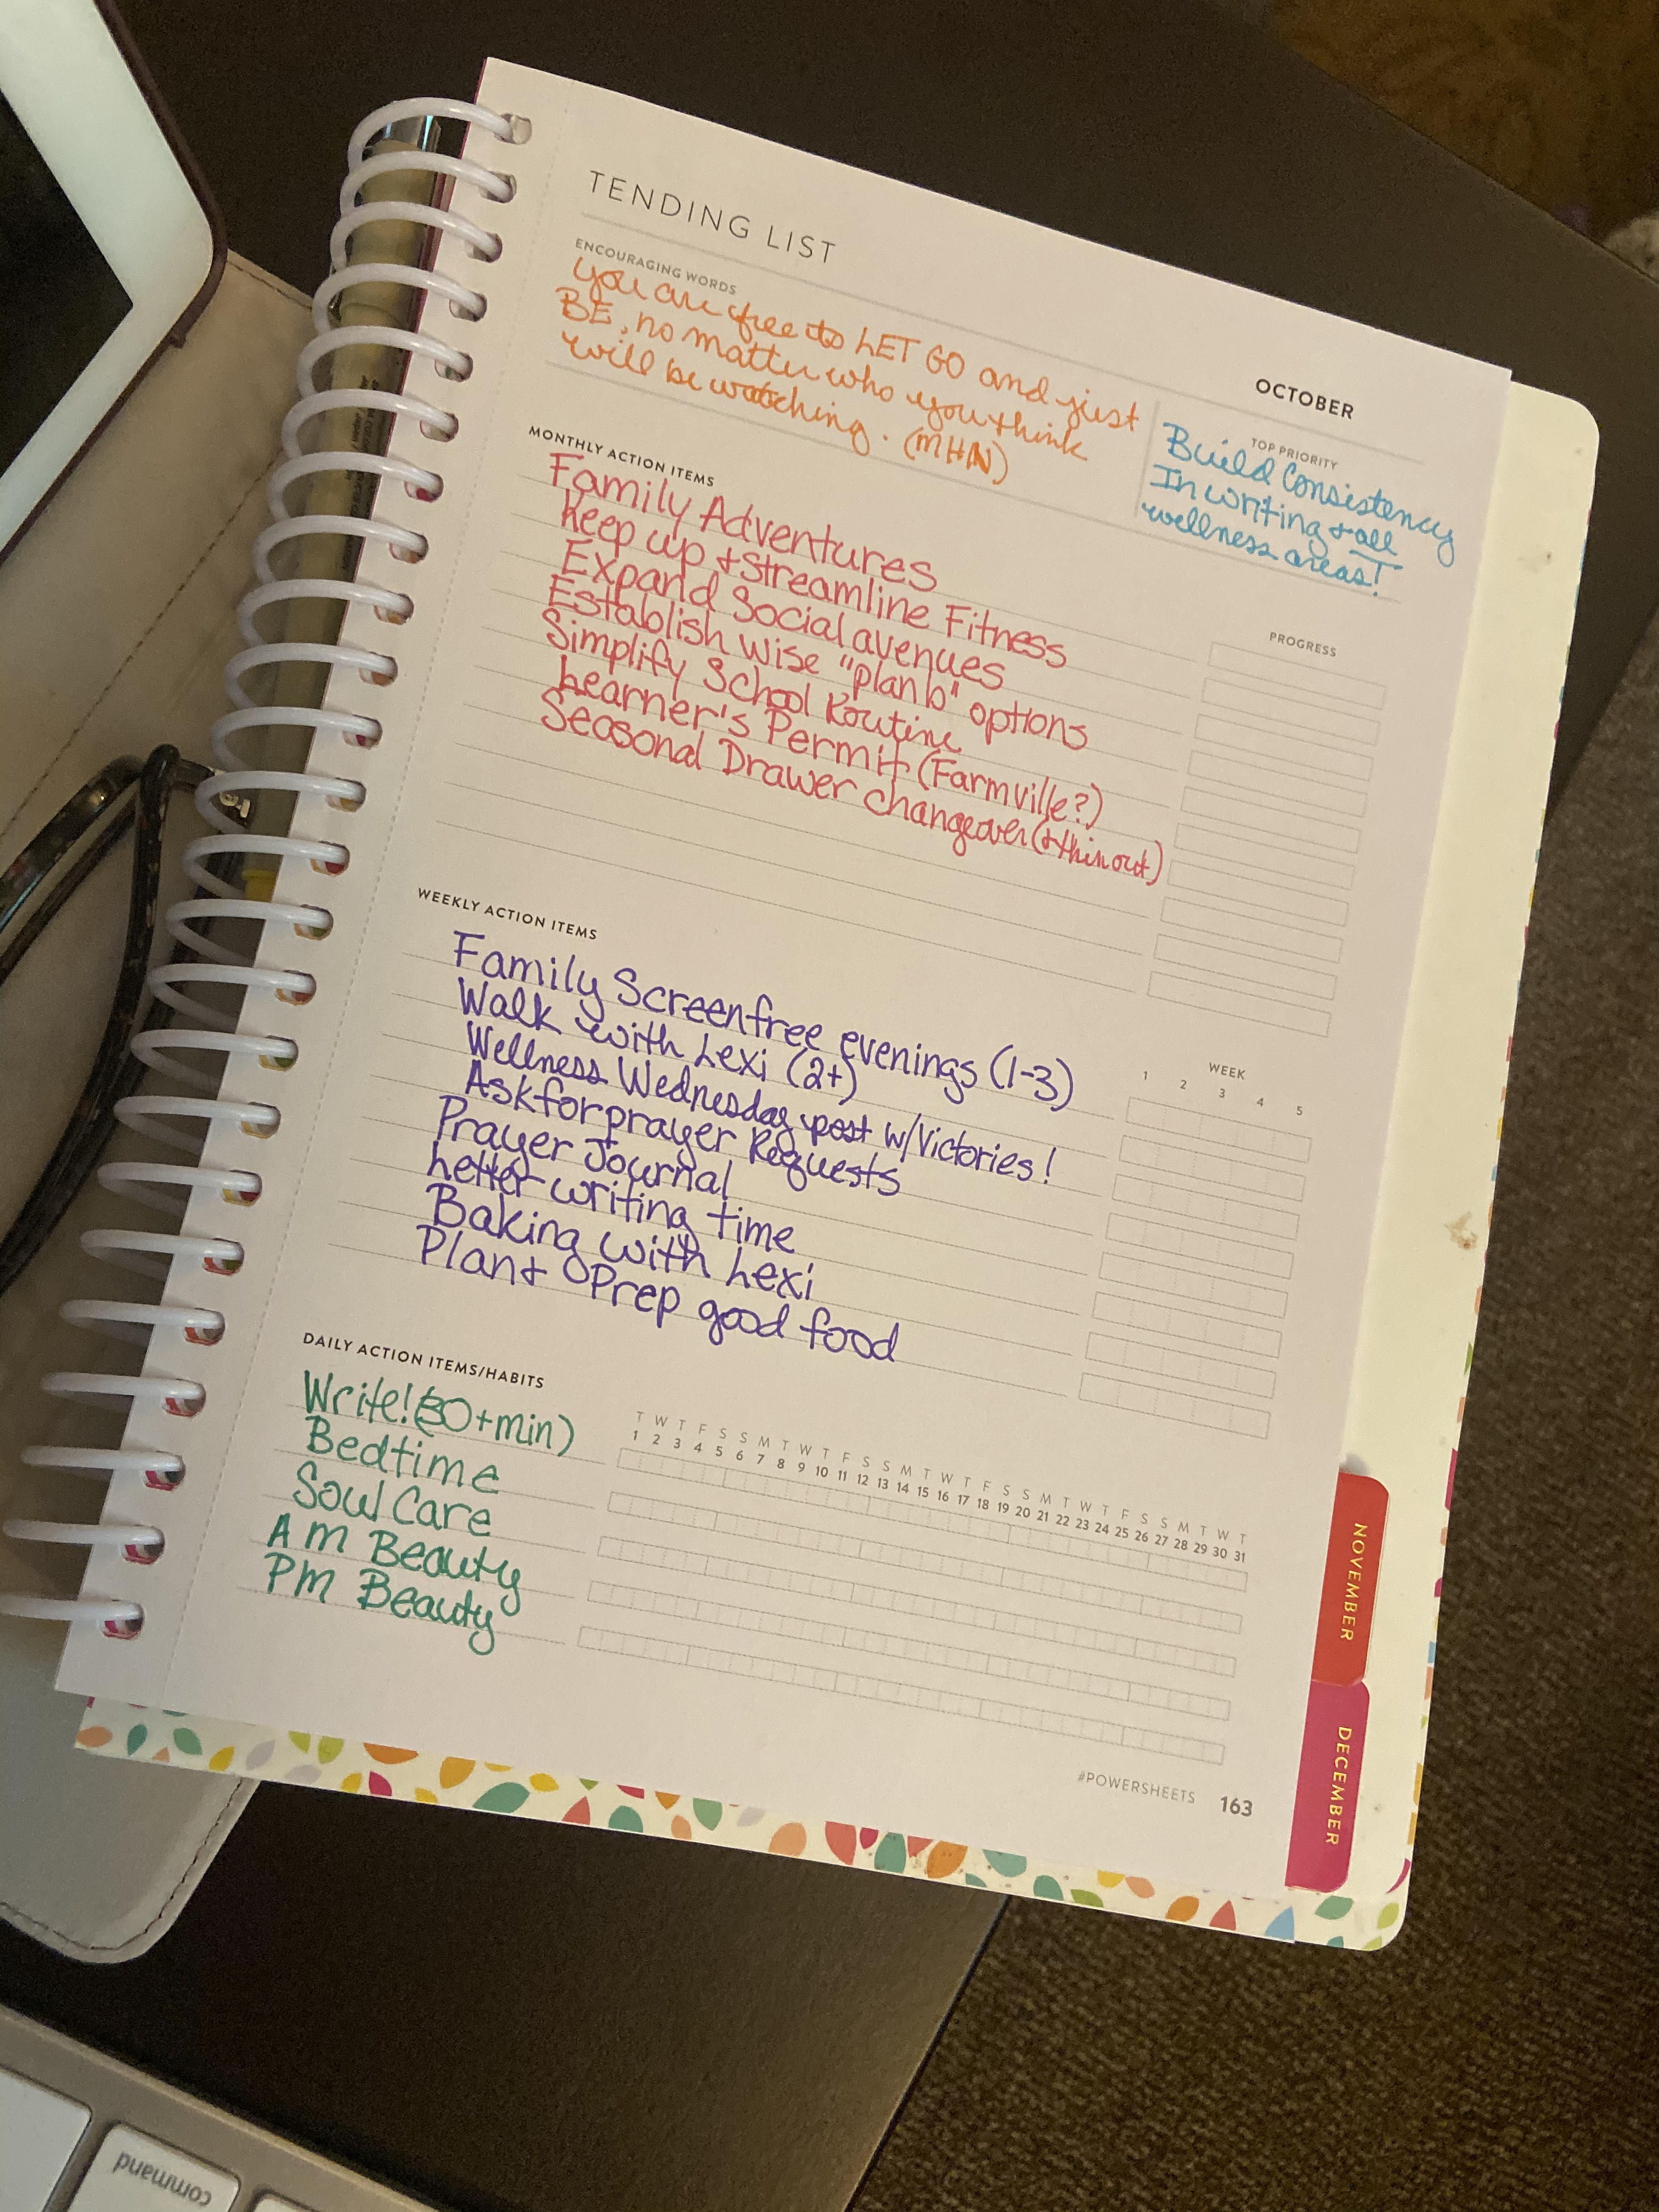 TENDING LIST
OCTOBER
ENCOURAGING WORDS
you are free to LET GO and just
BE, no matter who you think
will be watching. (MHN)
TOP PRIORITY
Build Consistency
In writing + all
wellness areas!
MONTHLY ACTION ITEMS
PROGRESS
Family Adventures
Keep up + Streamline Fitness
Expand Social avenues
Establish Wise "plan b" options
Simplify School Routine
Learner's Permit (Farmville?)
Seasonal Drawer changeover (+ thin out)
WEEKLY ACTION ITEMS
WEEK
1 2 3 4 5
Family Screenfree evenings (1-3)
Walk with Lexi (2+)
Wellness Wednesday post w/Victories!
Ask for prayer Requests
Prayer Journal
Letter-writing time
Baking with Lexi
Plan + Prep good food
DAILY ACTION ITEMS/HABITS
T W T F S S M T W T F S S M T W T F S S M T W T F S S M T W T
1 2 3 4 5 6 7 8 9 10 11 12 13 14 15 16 17 18 19 20 21 22 23 24 25 26 27 28 29 30 31
Write! (30+min)
Bedtime
Soul Care
Am Beauty
Pm Beauty
#POWERSHEETS 163
NOVEMBER
DECEMBER
command